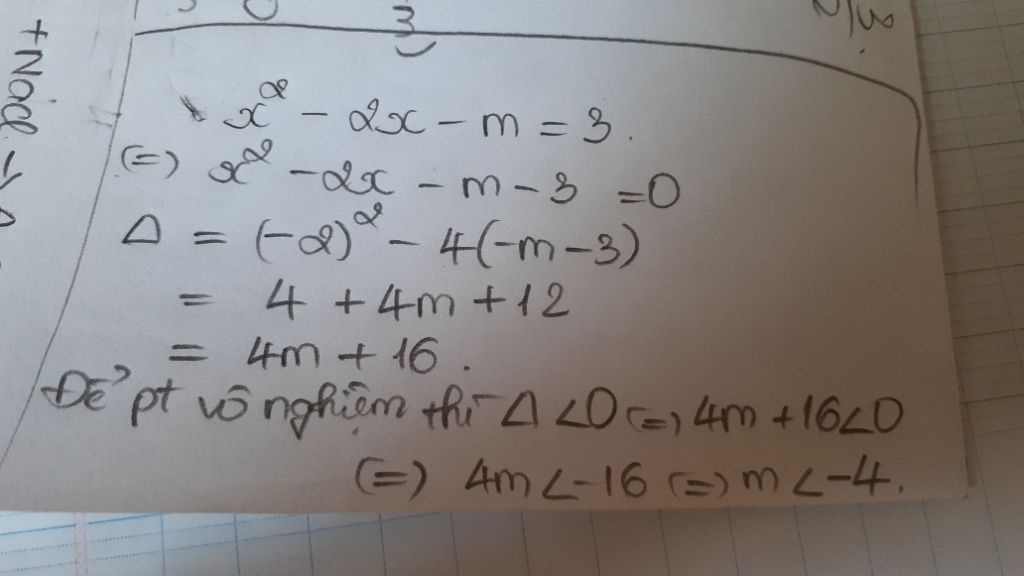 3
x² - 2x - m = 3.
(=) x² - 2x - m - 3 = 0
Δ = (-2)² - 4(-m-3)
= 4 + 4m + 12
= 4m + 16.
Để pt vô nghiệm thì Δ < 0 (=) 4m + 16 < 0
(=) 4m < -16 (=) m < -4.